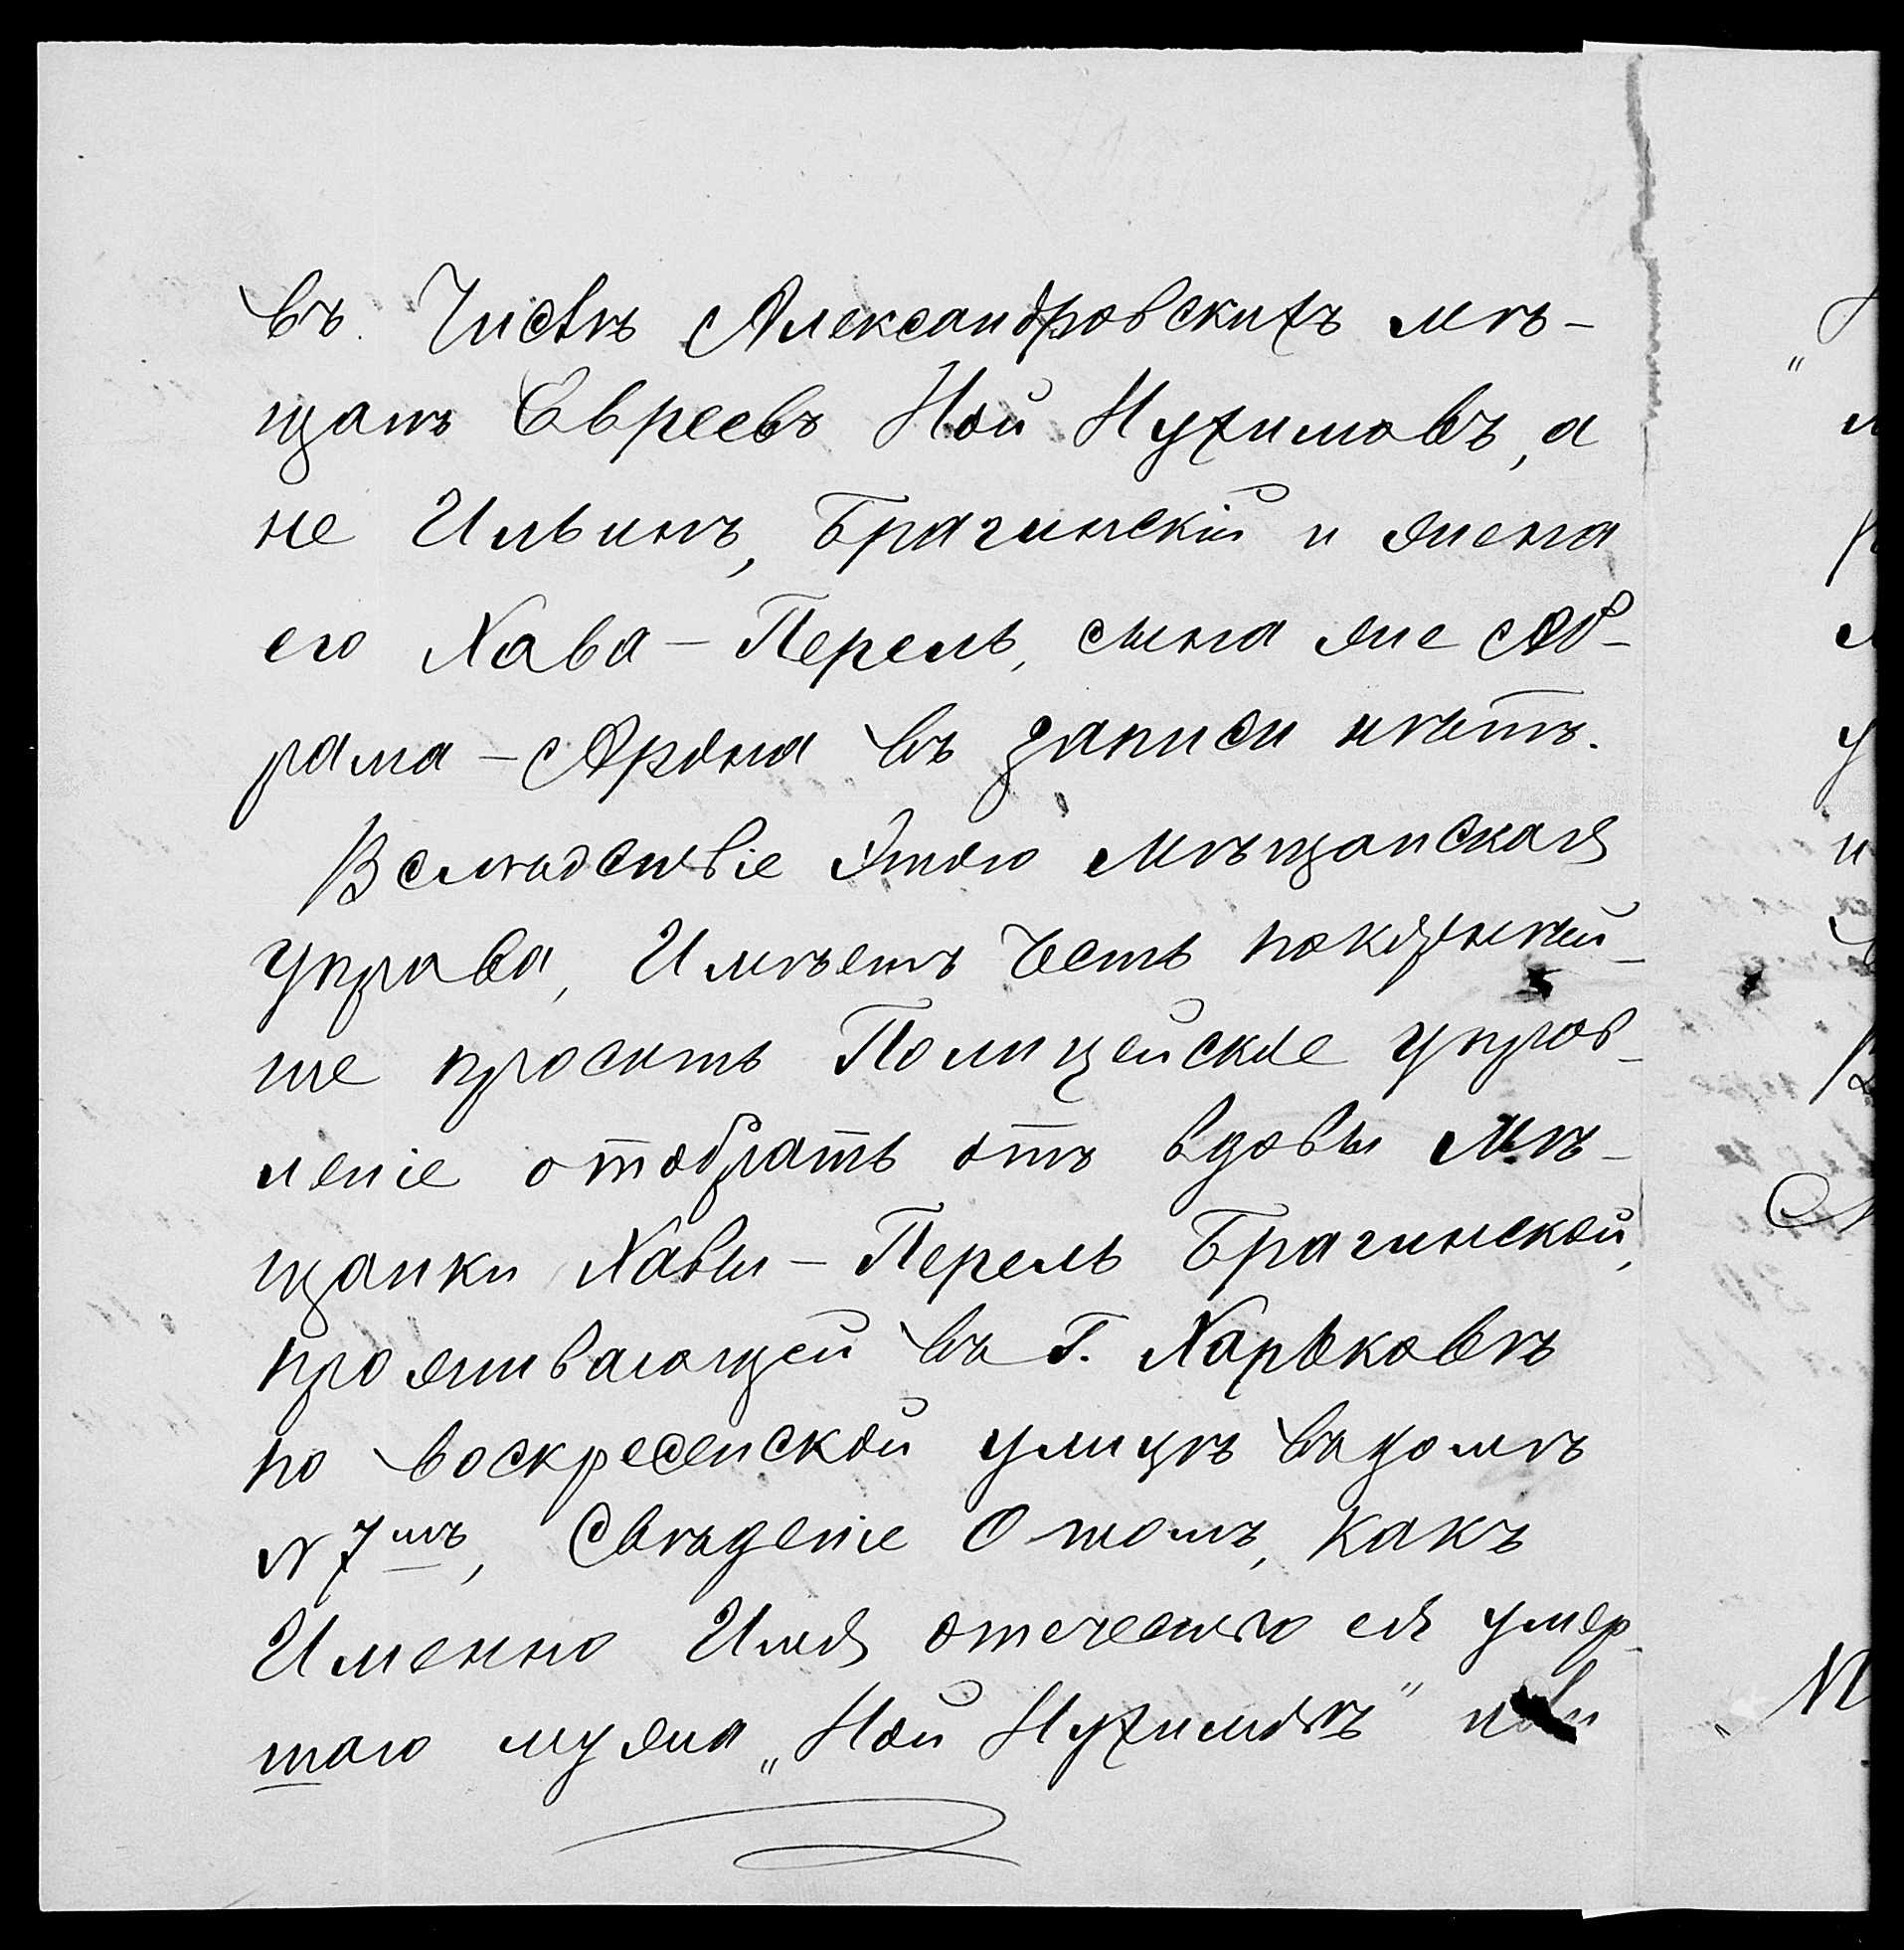 въ Числѣ Александровскихъ мѣ-
щанъ Евреевъ Ной Нухимовъ, а
не Ильинъ, Брагинскій и жена
его Хава-Перель, сына же Аб-
рама-Арона въ записи нѣтъ.
Вслѣдствіе Этого Мѣщанская
управа, Имѣетъ Честь покорнѣй-
ше просить Полицейское управ-
леніе отобрать отъ вдовы Мѣ-
щанки Хавы-Перель Брагинской,
проживающей въ Г. Харьковѣ
по воскресенской улицѣ въ домѣ
№ 7мъ, Свѣденіе О томъ, какъ
Именно Имя отечество ея умер-
шаго мужа „Ной Нухимовъ" или